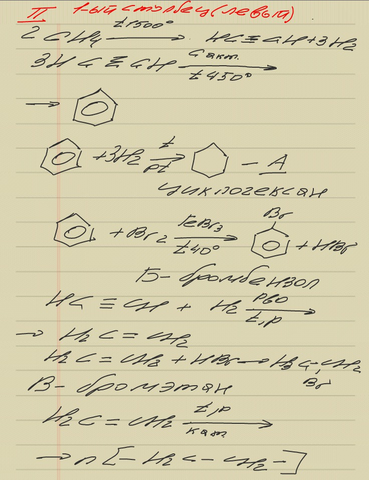 II 1-ый столбец (левый)
2CH₄ t 1500° → HC≡CH+3H₂
3HC≡CH C акт. t 450° →
→
+3H₂ t Pt → — A
циклогексан
+Br₂ FeBr₃ t 40° → Br + HBr
Б- бромбензол
HC≡CH + H₂ t,p →
→ H₂C=CH₂
H₂C=CH₂+HBr→H₃C-CH₂
Br
В- бромэтан
H₂C=CH₂ t,p кат →
→ n[-H₂C-CH₂-]